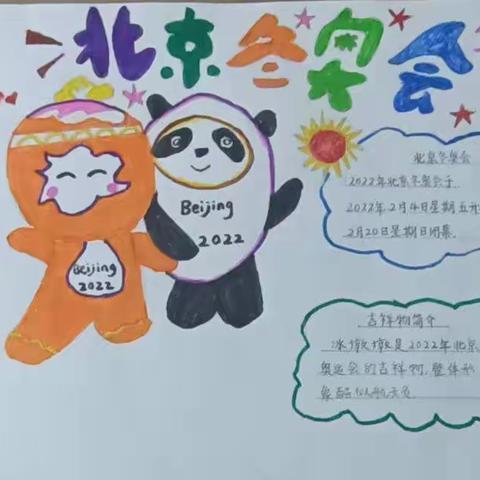 北京冬奥会
Beijing
2022
Beijing
2022
北京冬奥会
2022年北京冬奥会于
2022年2月4日星期五开
2月20日星期日闭幕.
吉祥物简介
冰墩墩是2022年北京
奥运会的吉祥物,整体形
象酷似航天员.